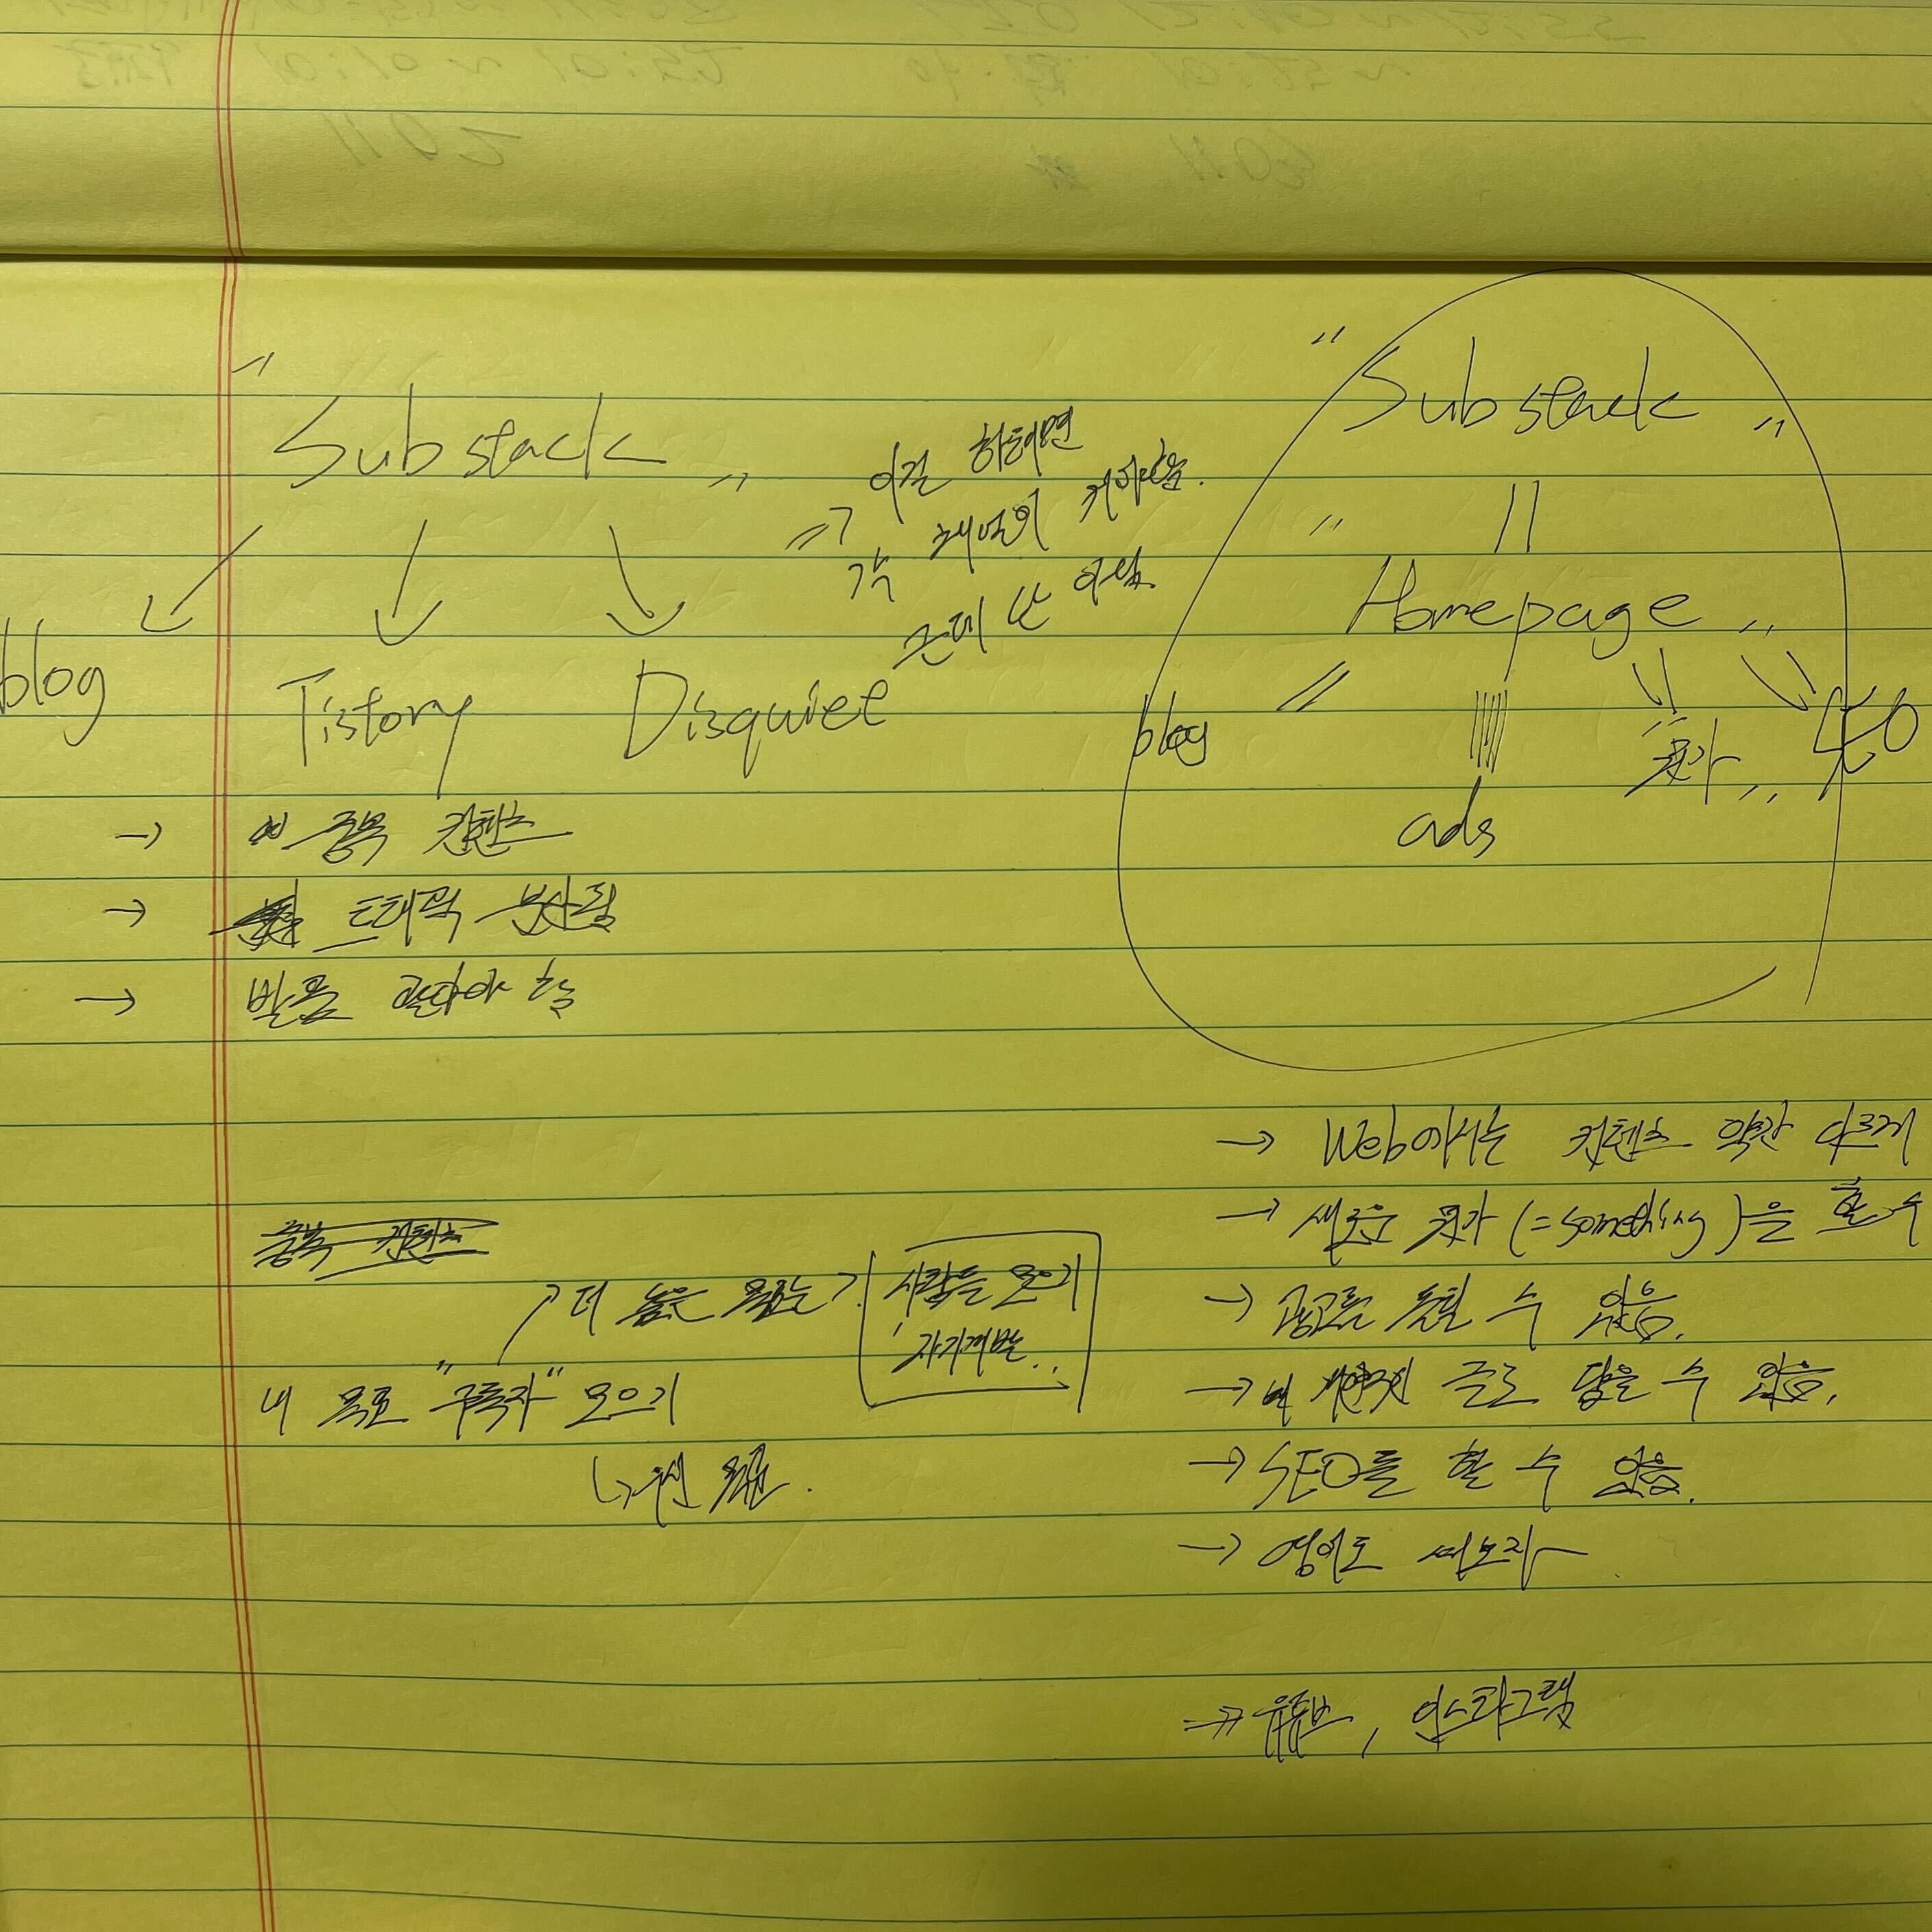 "Substack"
blog Tistory Disquiet
⇒ 이걸 하려면
각 채널의 커야함.
근데 난 아님
→ 중복 컨텐츠
→ 트래픽 분산됨
→ 발품 팔아야 함
중복 컨텐츠
↗ 더 높은 목표는?
사람들 모으기
자기계발..
내 목표 "구독자" 모으기
"Substack"
"Homepage"
blog ads "뭔가" SEO
→ Web에서는 컨텐츠 약간 다르게
→ 새로운 뭔가 (=something)을 할 수
→ 광고를 돌릴 수 있음.
→ 글로 담을 수 있음.
→ SEO를 할 수 있음.
→ 영어도 써보자
⇒ 유튜브, 인스타그램